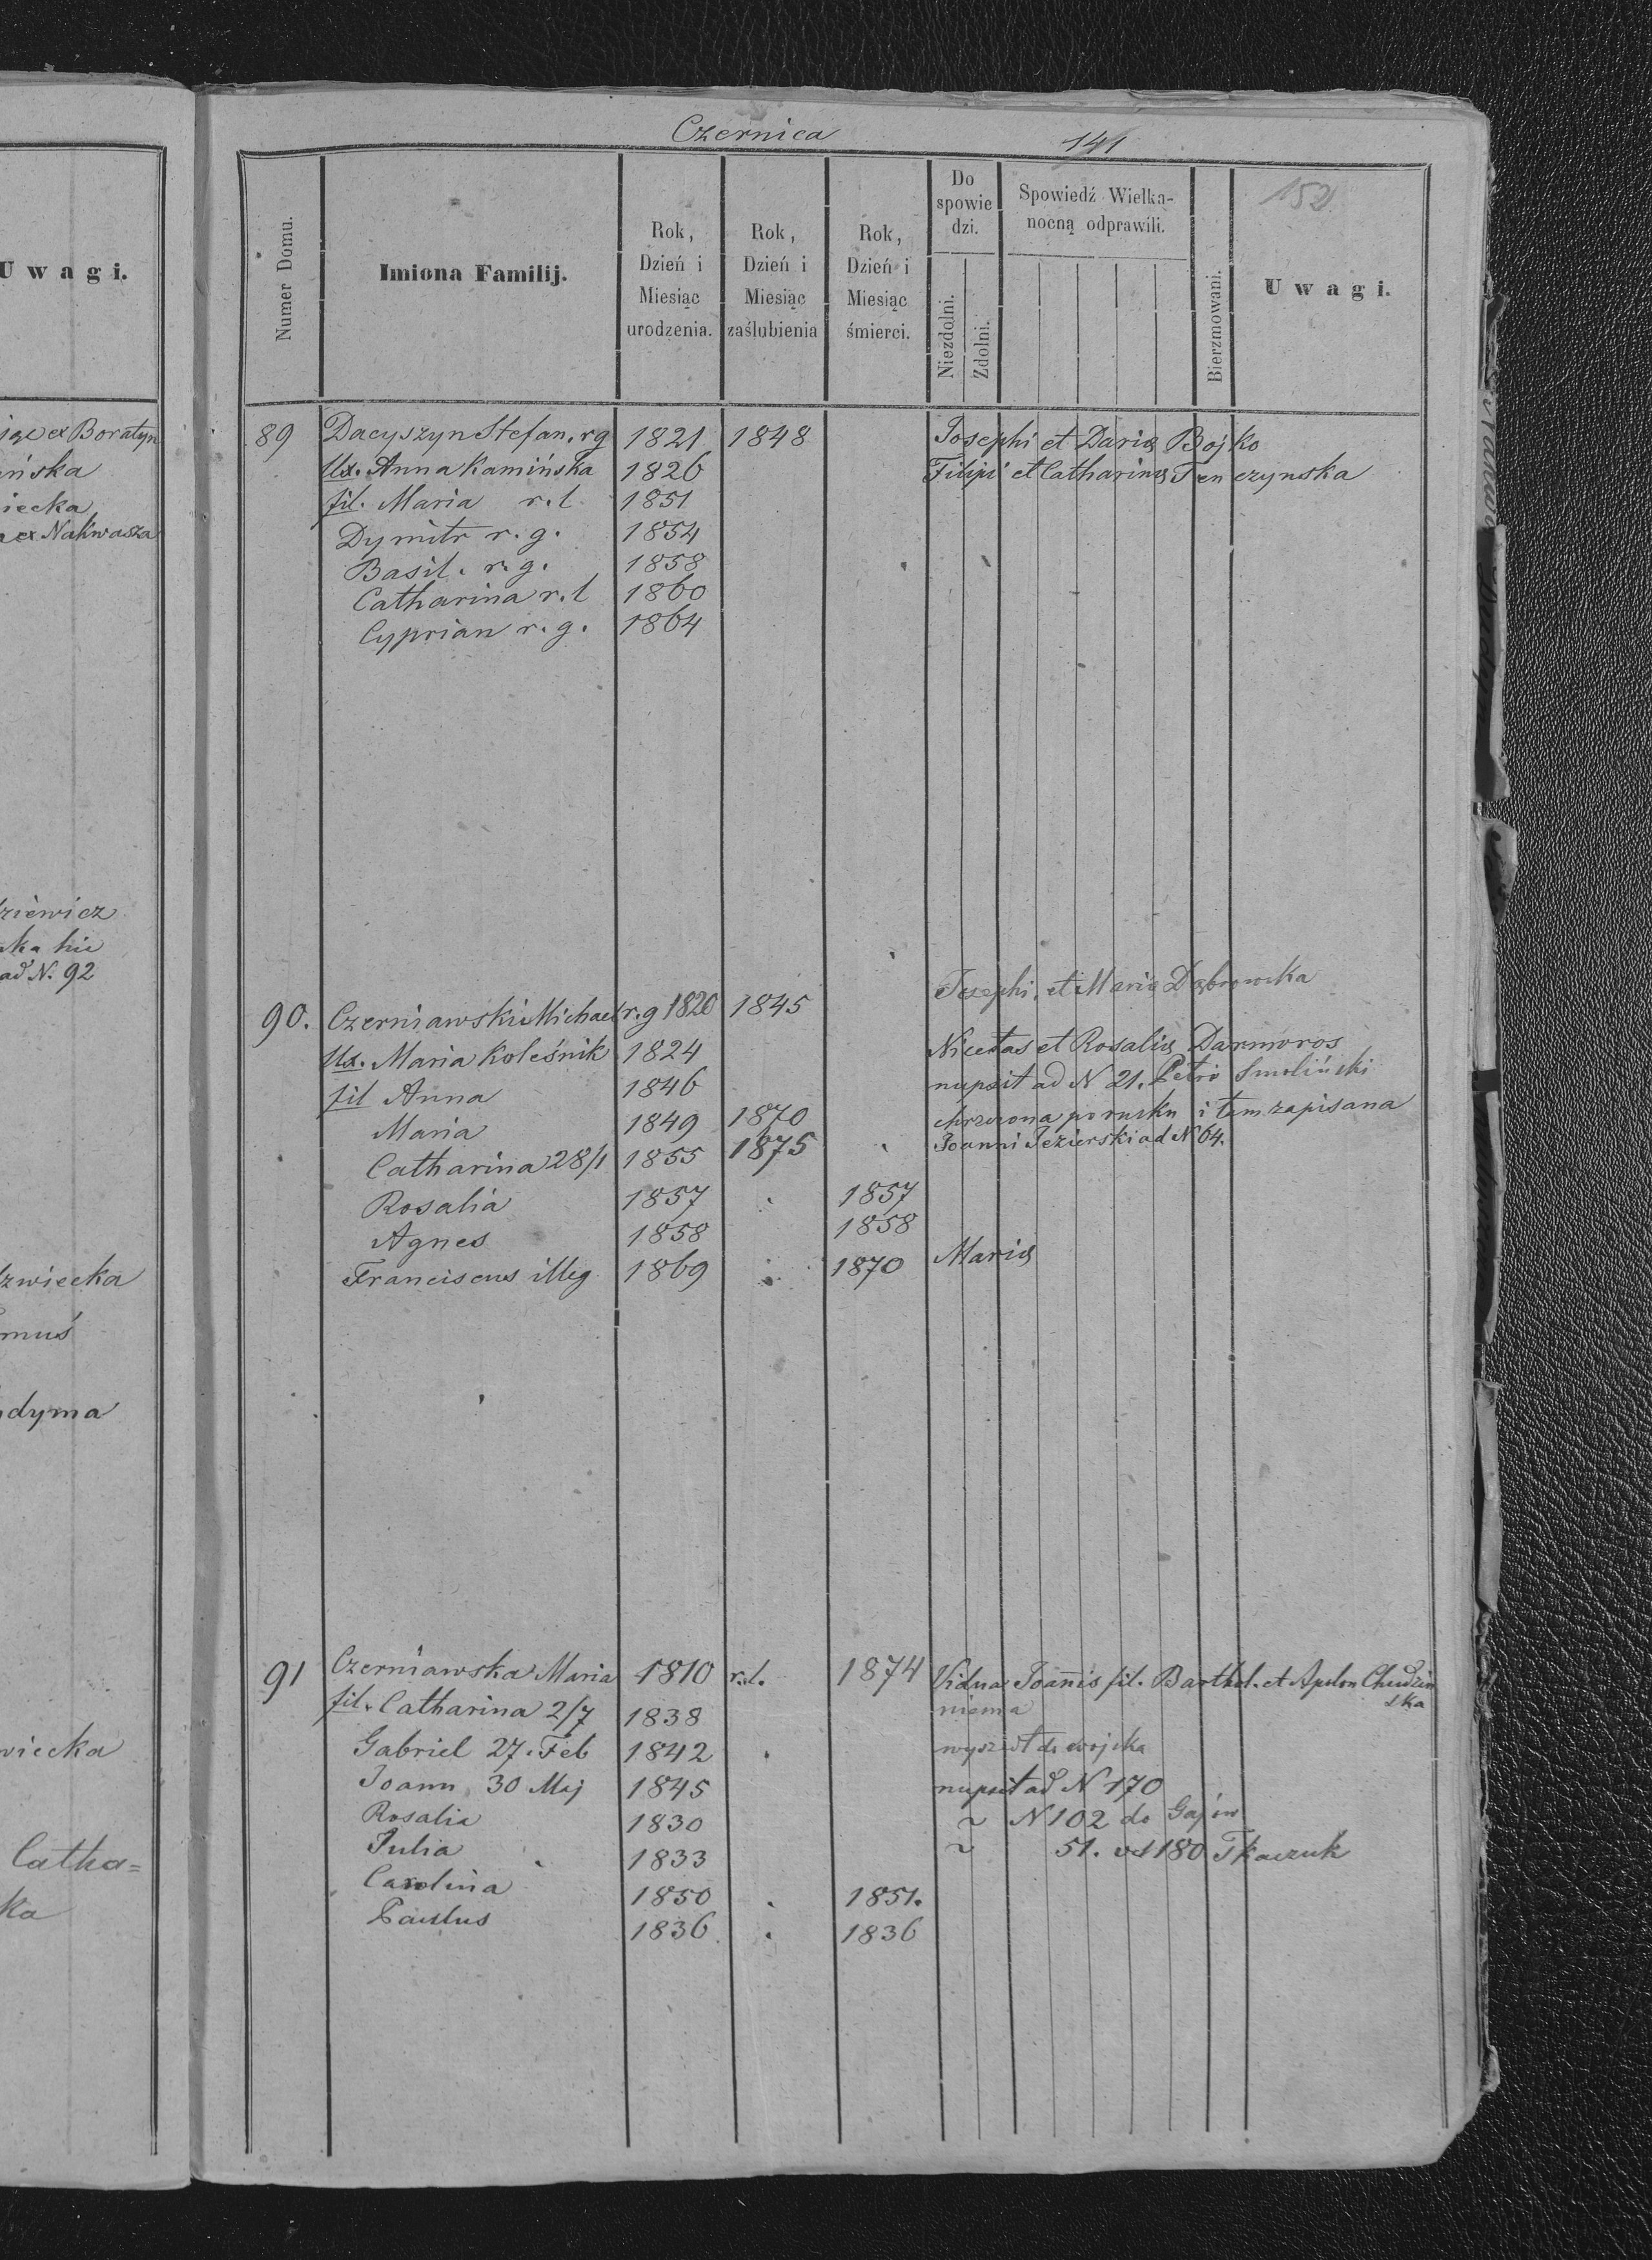 Czernica
141
152
Numer Domu.
Imiona Familij.
Rok, Dzień i Miesiąc urodzenia.
Rok, Dzień i Miesiąc zaślubienia
Rok, Dzień i Miesiąc śmierci.
Do spowiedzi.
Niezdolni.
Zdolni.
Spowiedź Wielkanocną odprawili.
Bierzmowani.
Uwagi.
Uwagi.
ex Boratyn
ińska
iecka
ex Nakwasza
ziewicz
ka hic
ad N. 92
zwiecka
muś
dyma
wiecka
Catha=
ka
89 Dacyszyn Stefan. rg 1821 1848 Josephi et Dariæ Bojko
Ux. Anna Kamińska 1826 Filipi et Catharinæ Tenczynska
fil. Maria r. l 1851
Dymitr r. g. 1854
Basil. r. g. 1858
Catharina r. l 1860
Cyprian r. g. 1864
90. Czerniawski Michael r. g 1820 1845 Josephi et Mariæ Dąbrowska
Ux. Maria Koleśnik 1824 Nicetas et Rosaliæ Darmoros
fil Anna 1846 nupsit ad N 21. Petro Smoliński
Maria 1849 1870 chrzczona po rusku i tam zapisana
Catharina 28/1 1855 1875 Joanni Jezierski ad N 64.
Rosalia 1857 1857
Agnes 1858 1858
Franciscus illeg 1869 1870 Mariæ
91 Czerniawska Maria 1810 r. l. 1874 Vidua Joannis fil. Barthol. et Apolon Chudzin
ska
fil. Catharina 2/7 1838 niema
Gabriel 27. Feb 1842 wyszedł do wojska
Joann 30 Maj 1845 nupsit ad N 170
Rosalia 1830 ~ N 102 do Gajów
Julia 1833 ~ 51. 180 Tkaczuk
Carolina 1850 1851.
Paulus 1836 1836